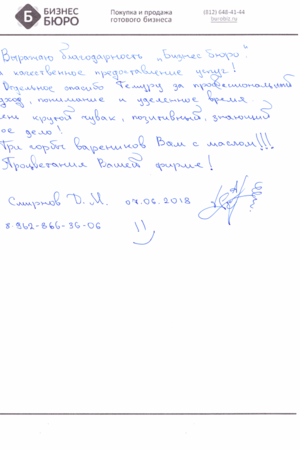 БИЗНЕС БЮРО
Покупка и продажа готового бизнеса
(812) 648-41-44
berobiz.ru
Выражаю благодарность „Бизнес Бюро"
качественное предоставление услуг!
Отдельное спасибо Тимуру за профессиональный
подход, понимание и уделенное время.
крутой чувак, позитивный, знающий
ое дело!
Три горы вареников Вам с маслом!!!
Процветания Вашей фирме!
Смирнов Д.М. 07.06.2018
8 962-866-36-06